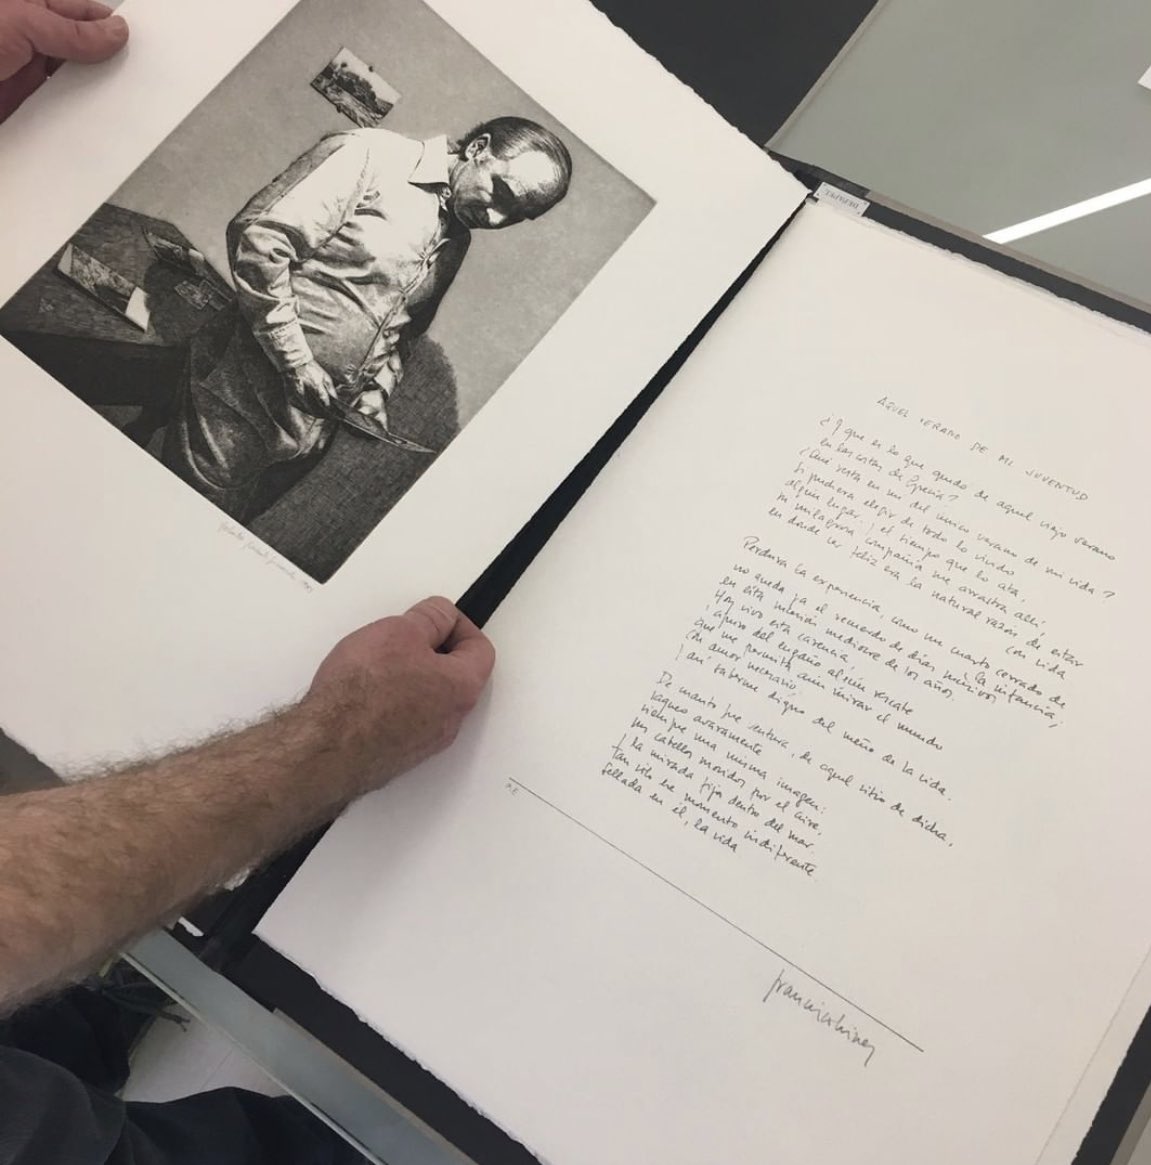 AQUEL VERANO DE MI JUVENTUD
¿Y qué es lo que quedó de aquel viejo verano
en las costas de Grecia?
¿Qué resta en mí del único verano de mi vida?
Si pudiera elegir de todo lo vivido
algún lugar, y el tiempo que lo ata,
su milagrosa compañía me arrastra allí,
en donde ser feliz era la natural razón de estar
con vida
Perdura la experiencia, como un cuarto cerrado de
la infancia;
no queda ya el recuerdo de días sucesivos
en esta sucesión mediocre de los años
Hoy vivo esta carencia,
y apuro del engaño algún rescate
que me permita aún mirar el mundo
con amor necesario;
y así saberme digno del sueño de la vida.
De cuanto fue ventura, de aquel sitio de dicha,
saqueo avaramente
siempre una misma imagen:
sus cabellos movidos por el aire,
y la mirada fija dentro del mar.
Tan sólo ese momento indiferente.
Sellada en él, la vida
P.E.
Francisco Brines